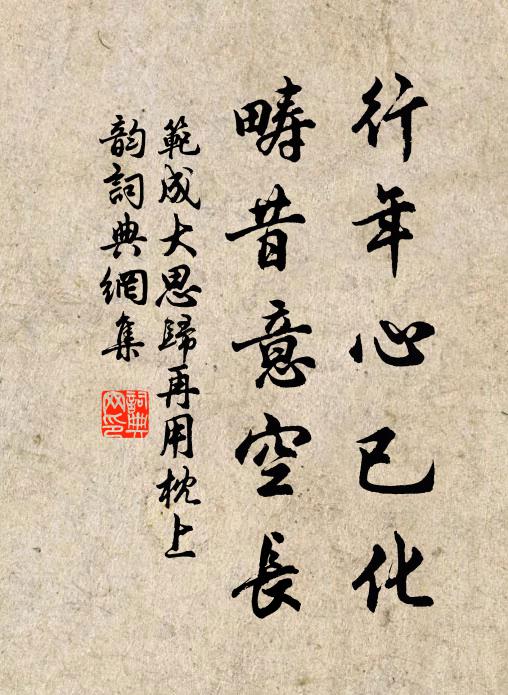 行年心已化
疇昔意空長
範成大思歸再用枕上
韵詞典網集
詞典網印